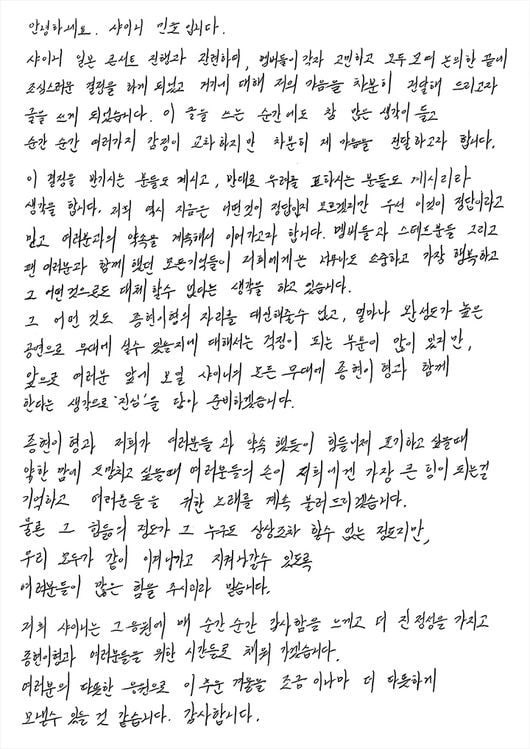 안녕하세요. 샤이니 민호입니다.
샤이니 일본 콘서트 진행과 관련하여, 멤버들이 각자 고민하고 모두 모여 논의한 끝에
조심스러운 결정을 하게 되었고 거기에 대해 저의 마음을 차분히 전달해 드리고자
글을 쓰게 되었습니다. 이 글을 쓰는 순간에도 참 많은 생각이 들고
순간 순간 여러가지 감정이 교차하지만 차분히 제 마음을 전달하고자 합니다.
이 결정을 반기시는 분들도 계시고, 반대로 우려를 표하시는 분들도 계시리라
생각을 합니다. 저희 역시 지금은 어떤것이 정답인지 모르겠지만 우선 이것이 정답이라고
믿고 여러분과의 약속을 계속해서 이어가고자 합니다. 멤버들과 스태프분들 그리고
팬 여러분과 함께 했던 모든기억들이 저희에게는 너무나도 소중하고 가장 행복하고
그 어떤것으로도 대체 할수 없다는 생각을 하고 있습니다.
그 어떤 것도 종현이형의 자리를 대신해줄수 없고, 얼마나 완성도가 높은
공연으로 무대에 설수 있을지에 대해서는 걱정이 되는 부분이 많이 있지만,
앞으로 여러분 앞에 보일 샤이니의 모든 무대에 종현이 형과 함께
한다는 생각으로 '진심'을 담아 준비하겠습니다.
종현이 형과 저희가 여러분들 과 약속 했듯이 힘들어서 포기하고 싶을때
약한 맘에 도망치고 싶을때 여러분들의 손이 저희에겐 가장 큰 힘이 되는걸
기억하고 여러분들을 위한 노래를 계속 불러드리겠습니다.
물론 그 힘듦의 정도가 그 누구도 상상조차 할수 없는 정도지만,
우리 모두가 같이 이겨나가고 지켜나갈수 있도록
여러분들이 많은 힘을 주시리라 믿습니다.
저희 샤이니는 그 응원에 매 순간순간 감사함을 느끼고 더 진정성을 가지고
종현이형과 여러분들을 위한 시간들로 채워 가겠습니다.
여러분의 따뜻한 응원으로 이 추운 겨울을 조금 이나마 더 따듯하게
보낼수 있을 것 같습니다. 감사합니다.